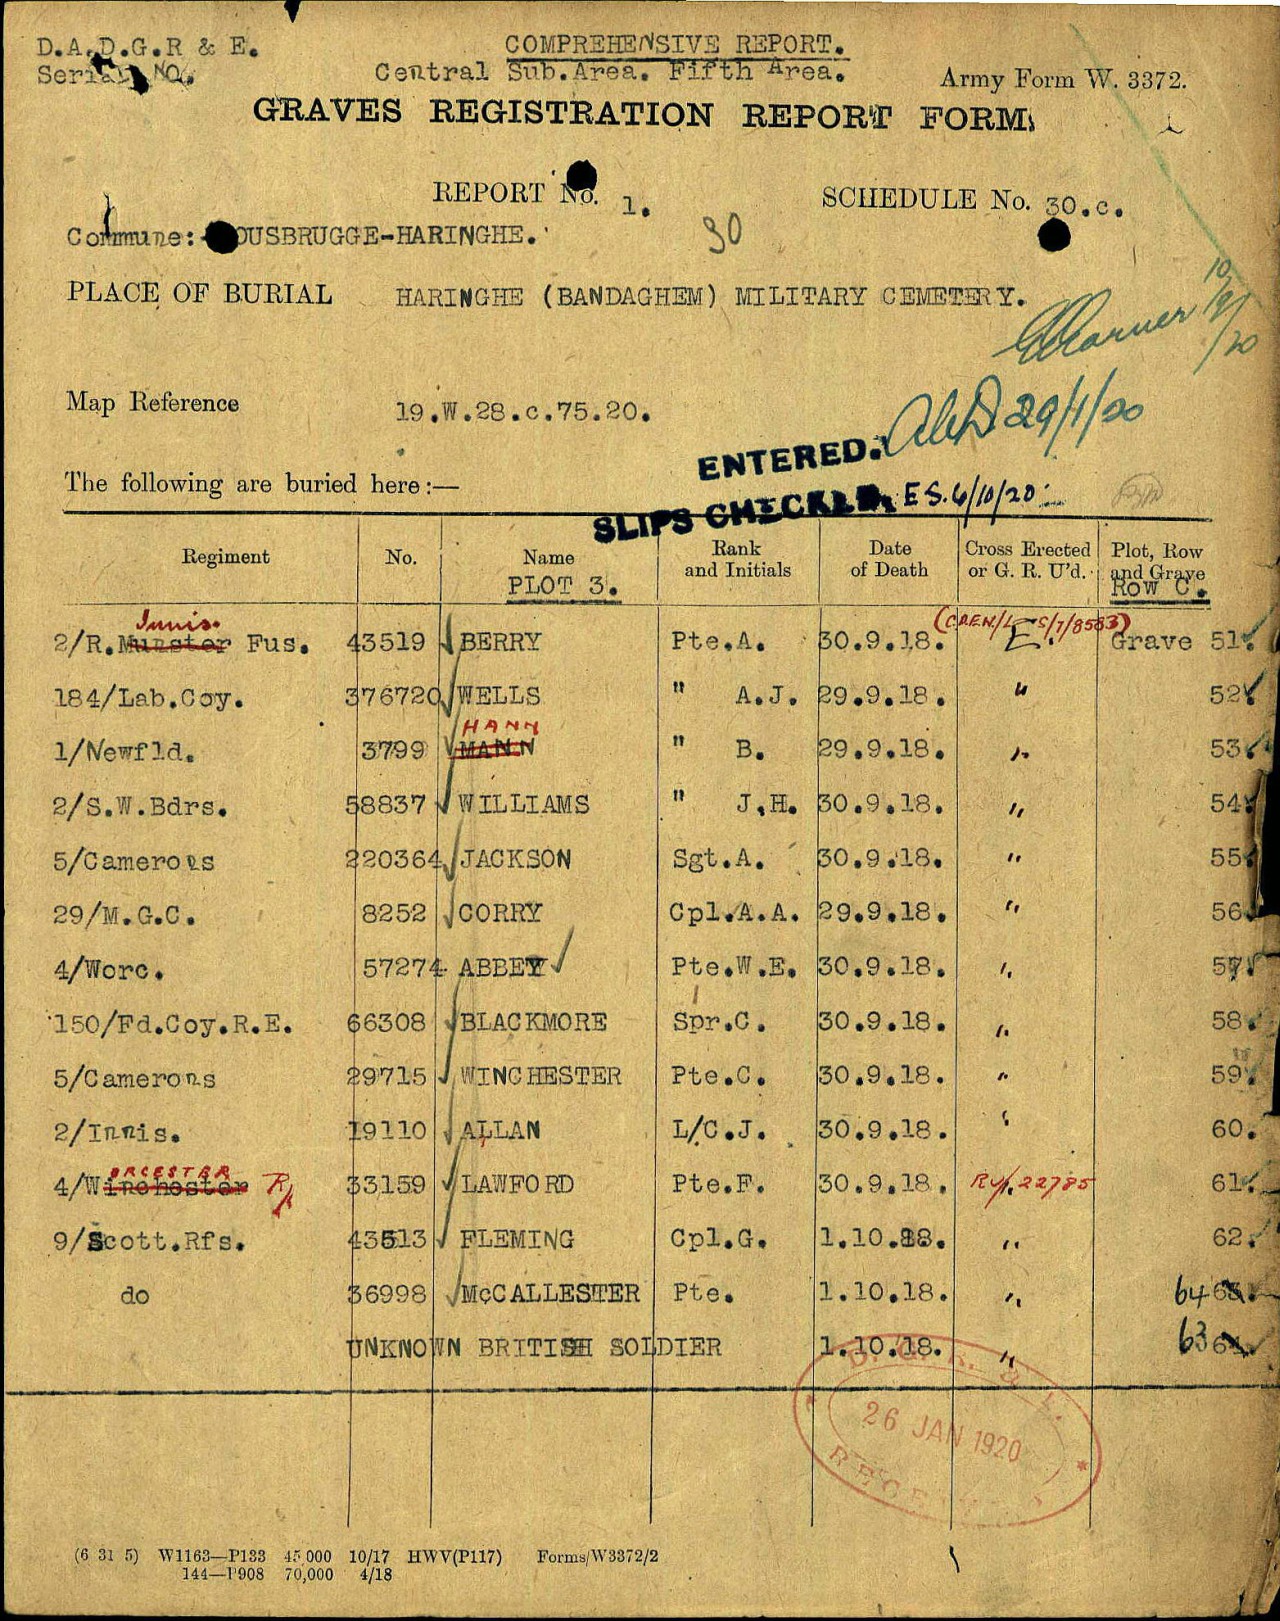 D.A.D.G.R & E.
COMPREHENSIVE REPORT.
Serial NO.
Central Sub.Area. Fifth Area.
Army Form W. 3372.
GRAVES REGISTRATION REPORT FORM.
REPORT No. 1.
SCHEDULE No. 30.c.
Commune: OUSBRUGGE-HARINGHE.
30
PLACE OF BURIAL HARINGHE (BANDAGHEM) MILITARY CEMETERY.
10/9/20
Map Reference 19.W.28.c.75.20.
29/1/20
ENTERED.
The following are buried here:—
SLIPS CHECKED. E S. 6/10/20
Regiment No. Name Rank and Initials Date of Death Cross Erected or G. R. U'd. Plot, Row and Grave
PLOT 3. Row C.
Innis. (CREN/L S/7/8583)
2/R.Munster Fus. 43519 BERRY Pte.A. 30.9.18. E. Grave 51.
184/Lab.Coy. 376720 WELLS " A.J. 29.9.18. " 52.
HANN
1/Newfld. 3799 MANN " B. 29.9.18. " 53.
2/S.W.Bdrs. 58837 WILLIAMS " J.H. 30.9.18. " 54.
5/Camerons 220364 JACKSON Sgt.A. 30.9.18. " 55.
29/M.G.C. 8252 CORRY Cpl.A.A. 29.9.18. " 56.
4/Worc. 57274 ABBEY Pte.W.E. 30.9.18. " 57.
150/Fd.Coy.R.E. 66308 BLACKMORE Spr.C. 30.9.18. " 58.
5/Camerons 29715 WINCHESTER Pte.C. 30.9.18. " 59.
2/Innis. 19110 ALLAN L/C.J. 30.9.18. " 60.
ORCESTER
4/Winchester 33159 LAWFORD Pte.F. 30.9.18. 22785 61.
9/Scott.Rfs. 43513 FLEMING Cpl.G. 1.10.18. " 62.
do 36998 McCALLESTER Pte. 1.10.18. " 64 63.
UNKNOWN BRITISH SOLDIER 1.10.18. " 63 64.
26 JAN 1920
(6 31 5) W1163—P133 45,000 10/17 HWV(P117) Forms/W3372/2
144—P908 70,000 4/18